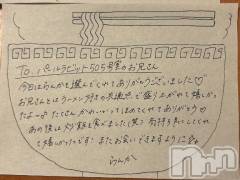 To. パールラビット505号室のお兄さん
今日はらんかを選んでくれてありがとうございました♡
お兄さんとはラーメン好きの共通点で盛り上がれて嬉しかっ
たよ たくさんかわいいってほめてくれてありがとう♡
あの後は炒飯を食べました(笑) 気持ち良いしてくれ
て嬉しかったです！またお会いできますように
らんか